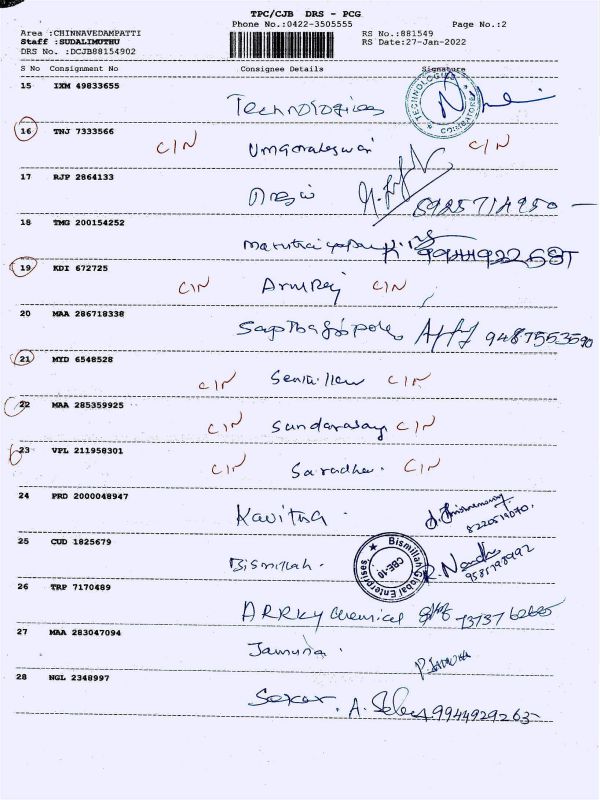 TPC/CJB DRS - PCG
Phone No.:0422-3505555 Page No.:2
Area :CHINNAVEDAMPATTI RS No.:881549
Staff :SUDALIMUTHU RS Date:27-Jan-2022
DRS No. :DCJB88154902
S No Consignment No Consignee Details Signature
15 IXM 49833655
Technologies TECHNOLOGI COIMBATORE
16 TNJ 7333566
C/N Umamaheswari C/N
17 RJP 2864133
8925714950
18 TMG 200154252
19 KDI 672725
C/N Arulraj C/N
20 MAA 286718338
21 MYD 6548528
C/N C/N
22 MAA 285359925
C/N C/N
23 VPL 211958301
C/N Saradha. C/N
24 PRD 2000048947
Kavitha .
25 CUD 1825679
Bismillah. Bismillah Global Enterprises CBE-10
26 TRP 7170489
ARRKY chemical
27 MAA 283047094
Jamuna . P.JAMUNA
28 NGL 2348997
Sekar . 9944929263